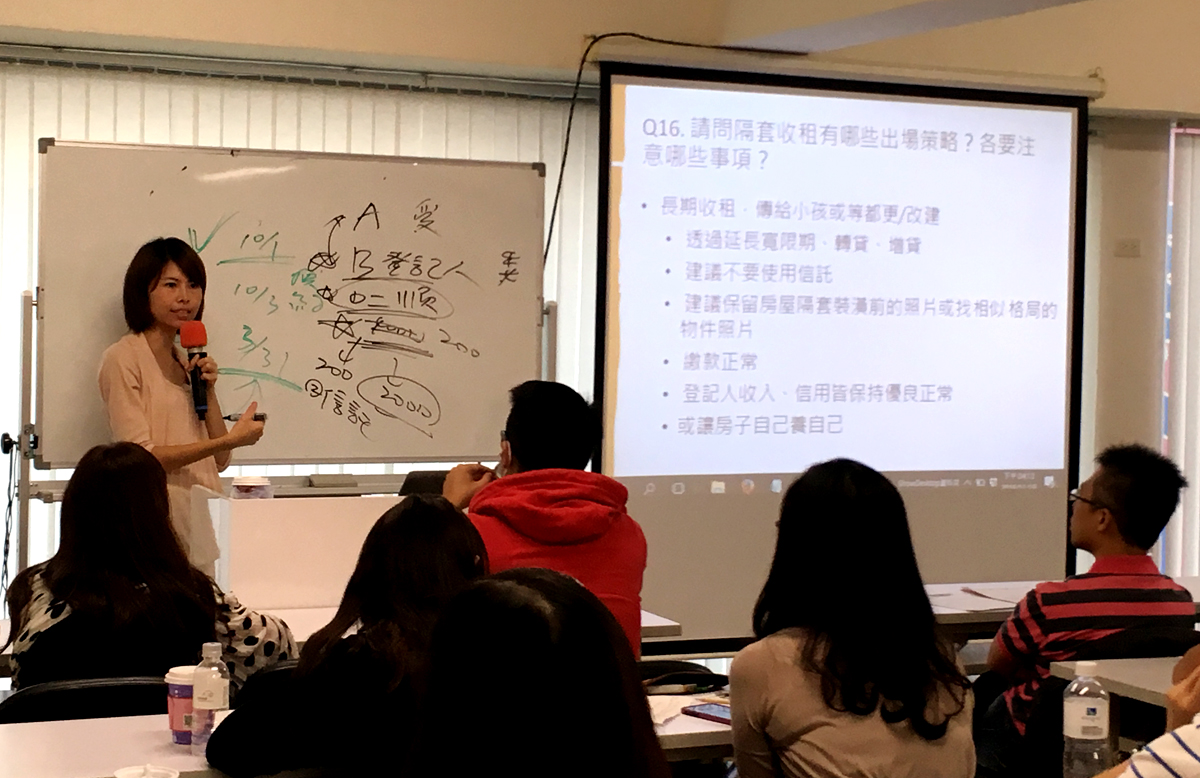 10/1
10/3
3/31
A 愛
B 登記人
二順
200
200
②信託
2000
Q16. 請問隔套收租有哪些出場策略？各要注
意哪些事項？
• 長期收租、傳給小孩或等都更/改建
• 透過延長寬限期、轉貸、增貸
• 建議不要使用信託
• 建議保留房屋隔套裝潢前的照片或找相似格局的
物件照片
• 繳款正常
• 登記人收入、信用皆保持優良正常
• 或讓房子自己養自己